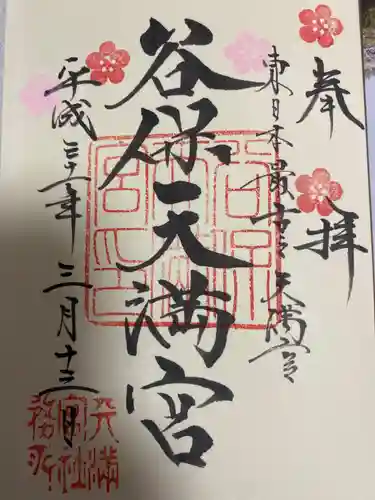 奉拝
東日本最古之天満宮
谷保天満宮
平成三十一年三月十三日